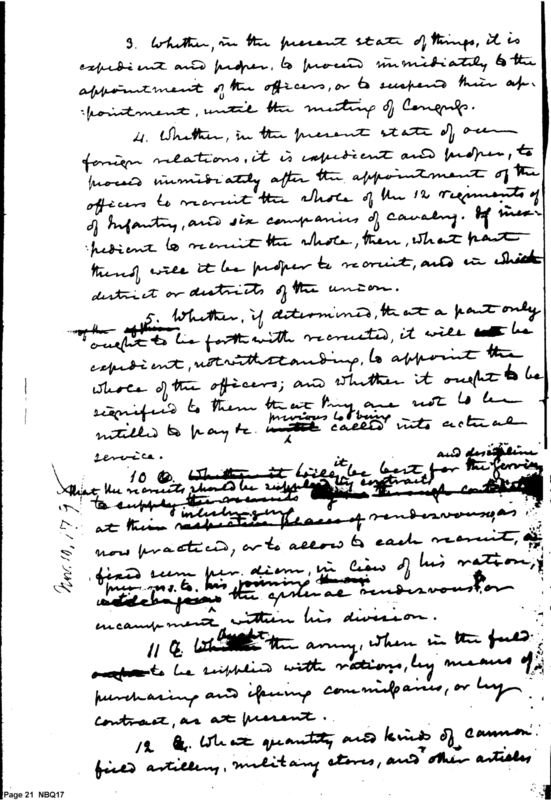 3. Whether, in the present state of things, it is
expedient and proper, to proceed immediately to the
appointment of the officers, or to suspend their ap-
:pointment, until the meeting of Congress.
4. Whether, in the present state of our
foreign relations, it is expedient and proper, to
proceed immediately after the appointment of the
officers to recruit the whole of the 12 regiments of
of Infantry, and six companies of cavalry. If inex-
pedient to recruit the whole, then, what part
thereof will it be proper to recruit, and in which
district or districts of the union.
5. Whether, if determined, that a part only
ought to be forth with recruited, it will be
expedient, notwithstanding, to appoint the
whole of the officers; and whether it ought to be
signified to them that they are not to be
intitled to pay &c. previous to being called into actual
service.
10 Q. Whether it will be best for the service and discipline
that the recruits should be supplied by contract
to supply the recruits
at their respective places of rendezvous, as
now practiced, or to allow to each recruit, a
fixed sum per. diem, in lieu of his ration,
previous to his joining
the general rendezvous or
encampment within his division.
11 Q Ought the army, when in the field
to be supplied with rations, by means of
purchasing and issuing commissaries, or by
contract, as at present.
12 Q. What quantity and kinds of cannon
field artillery, military stores, and other articles
Nov. 10, 179
Page 21 NBQ17